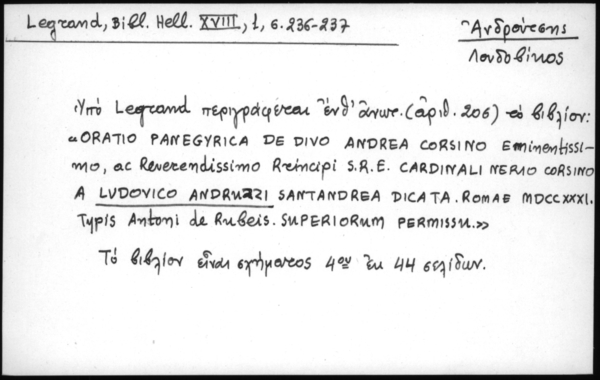 Legrand, Bibl. Hell. XVIII, 1, σ. 236-237
Ἀνδρούτσης
Λουδοβίκος
Ὑπὸ Legrand περιγράφεται ἔνθ' ἄνωτ. (ἀριθ. 206) τὸ βιβλίον:
«ORATIO PANEGYRICA DE DIVO ANDREA CORSINO Eminentissi-
mo, ac Reverendissimo Principi S.R.E. CARDINALI NERIO CORSINO
A LVDOVICO ANDRUZZI SANTANDREA DICATA. ROMAE MDCCXXXI.
Typis Antoni de Rubeis. SUPERIORUM PERMISSU.»
Τὸ βιβλίον εἶναι σχήματος 4ου ἐκ 44 σελίδων.